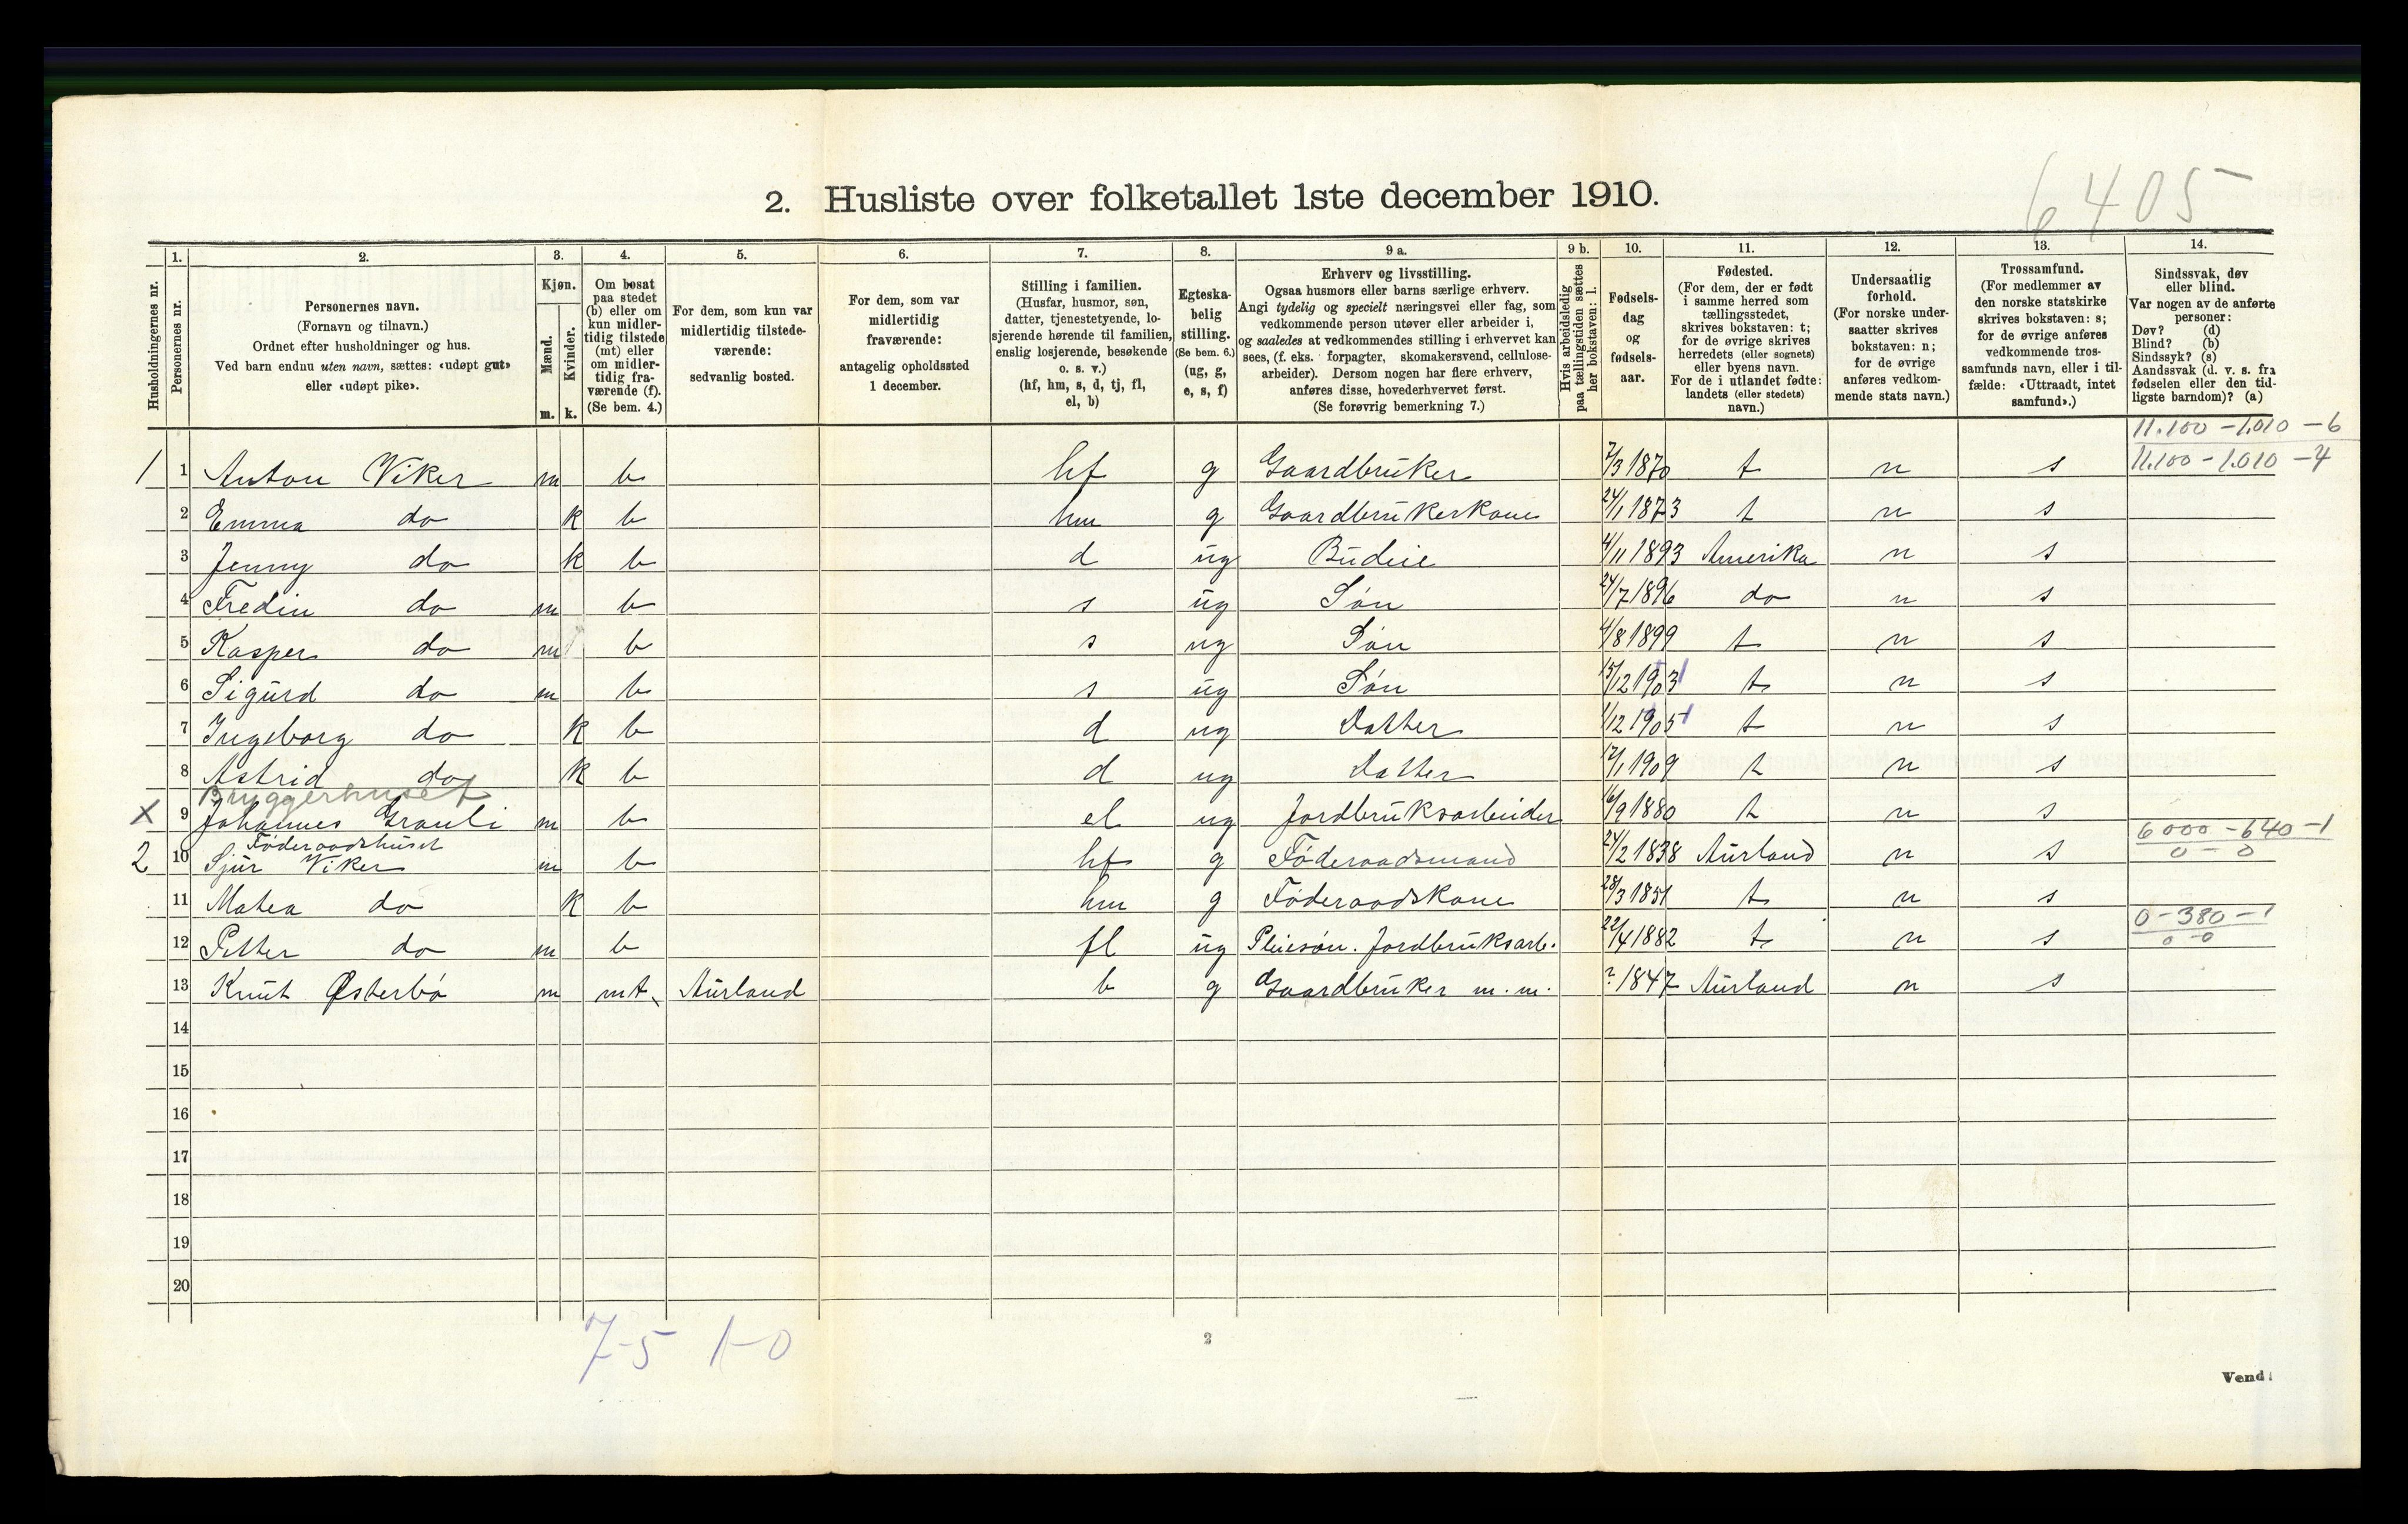 6405
2. Husliste over folketallet 1ste december 1910.
1. 2. 3. 4. 5. 6. 7. 8. 9 a. 9 b. 10. 11. 12. 13. 14.
Husholdningernes nr.
Personernes nr.
Personernes navn.
(Fornavn og tilnavn.)
Ordnet efter husholdninger og hus.
Ved barn endnu uten navn, sættes: «udøpt gut»
eller «udøpt pike».
Kjøn.
Mænd.
Kvinder.
m. k.
Om bosat
paa stedet
(b) eller om
kun midler-
tidig tilstede
(mt) eller
om midler-
tidig fra-
værende (f).
(Se bem. 4.)
For dem, som kun var
midlertidig tilstede-
værende:
sedvanlig bosted.
For dem, som var
midlertidig
fraværende:
antagelig opholdssted
1 december.
Stilling i familien.
(Husfar, husmor, søn,
datter, tjenestetyende, lo-
sjerende hørende til familien,
enslig losjerende, besøkende
o. s. v.)
(hf, hm, s, d, tj, fl,
el, b)
Egteska-
belig
stilling.
(Se bem. 6.)
(ug, g,
e, s, f)
Erhverv og livsstilling.
Ogsaa husmors eller barns særlige erhverv.
Angi tydelig og specielt næringsvei eller fag, som
vedkommende person utøver eller arbeider i,
og saaledes at vedkommendes stilling i erhvervet kan
sees, (f. eks. forpagter, skomakersvend, cellulose-
arbeider). Dersom nogen har flere erhverv,
anføres disse, hovederhvervet først.
(Se forøvrig bemerkning 7.)
Hvis arbeidsledig
paa tællingstiden sættes
her bokstaven: l.
Fødsels-
dag
og
fødsels-
aar.
Fødested.
(For dem, der er født
i samme herred som
tællingsstedet,
skrives bokstaven: t;
for de øvrige skrives
herredets (eller sognets)
eller byens navn.
For de i utlandet fødte:
landets (eller stedets)
navn.)
Undersaatlig
forhold.
(For norske under-
saatter skrives
bokstaven: n;
for de øvrige
anføres vedkom-
mende stats navn.)
Trossamfund.
(For medlemmer av
den norske statskirke
skrives bokstaven: s;
for de øvrige anføres
vedkommende tros-
samfunds navn, eller i til-
fælde: «Uttraadt, intet
samfund».)
Sindssvak, døv
eller blind.
Var nogen av de anførte
personer:
Døv? (d)
Blind? (b)
Sindssyk? (s)
Aandssvak (d. v. s. fra
fødselen eller den tid-
ligste barndom)? (a)
11.100 - 1.010 - 6
1 1 Anton Viker m b hf g Gaardbruker 7/3 1870 t n s 11.100 - 1.010 - 4
2 Emma do k b hm g Gaardbrukerkone 24/1 1873 t n s
3 Jenny do k b d ug Budeie 4/11 1893 Amerika n s
4 Fredin do m b s ug Søn 24/7 1896 do n s
5 Kasper do m b s ug Søn 4/8 1899 t n s
6 Sigurd do m b s ug Søn 15/12 1903 t n s
7 Ingeborg do k b d ug Datter 1/12 1905 t n s
8 Astrid do k b d ug Datter 12/1 1909 t n s
Bryggerhuset
x 9 Johannes Grauli m b el ug Jordbruksarbeider 16/9 1880 t n s
Føderaadshuset 6000 - 640 - 1
2 10 Sjur Viker m b hf g Føderaadsmand 24/2 1838 Aurland n s 0 - 0
11 Matea do k b hm g Føderaadskone 28/3 1851 t n s
0 - 380 - 1
12 Petter do m b fl ug Pleiesøn. Jordbruksarb. 22/4 1882 t n s 0 - 0
13 Knut Østerbø m mt Aurland b g Gaardbruker m.m. ? 1847 Aurland n s
14
15
16
17
18
19
20
7-5 1-0
2
Vend!